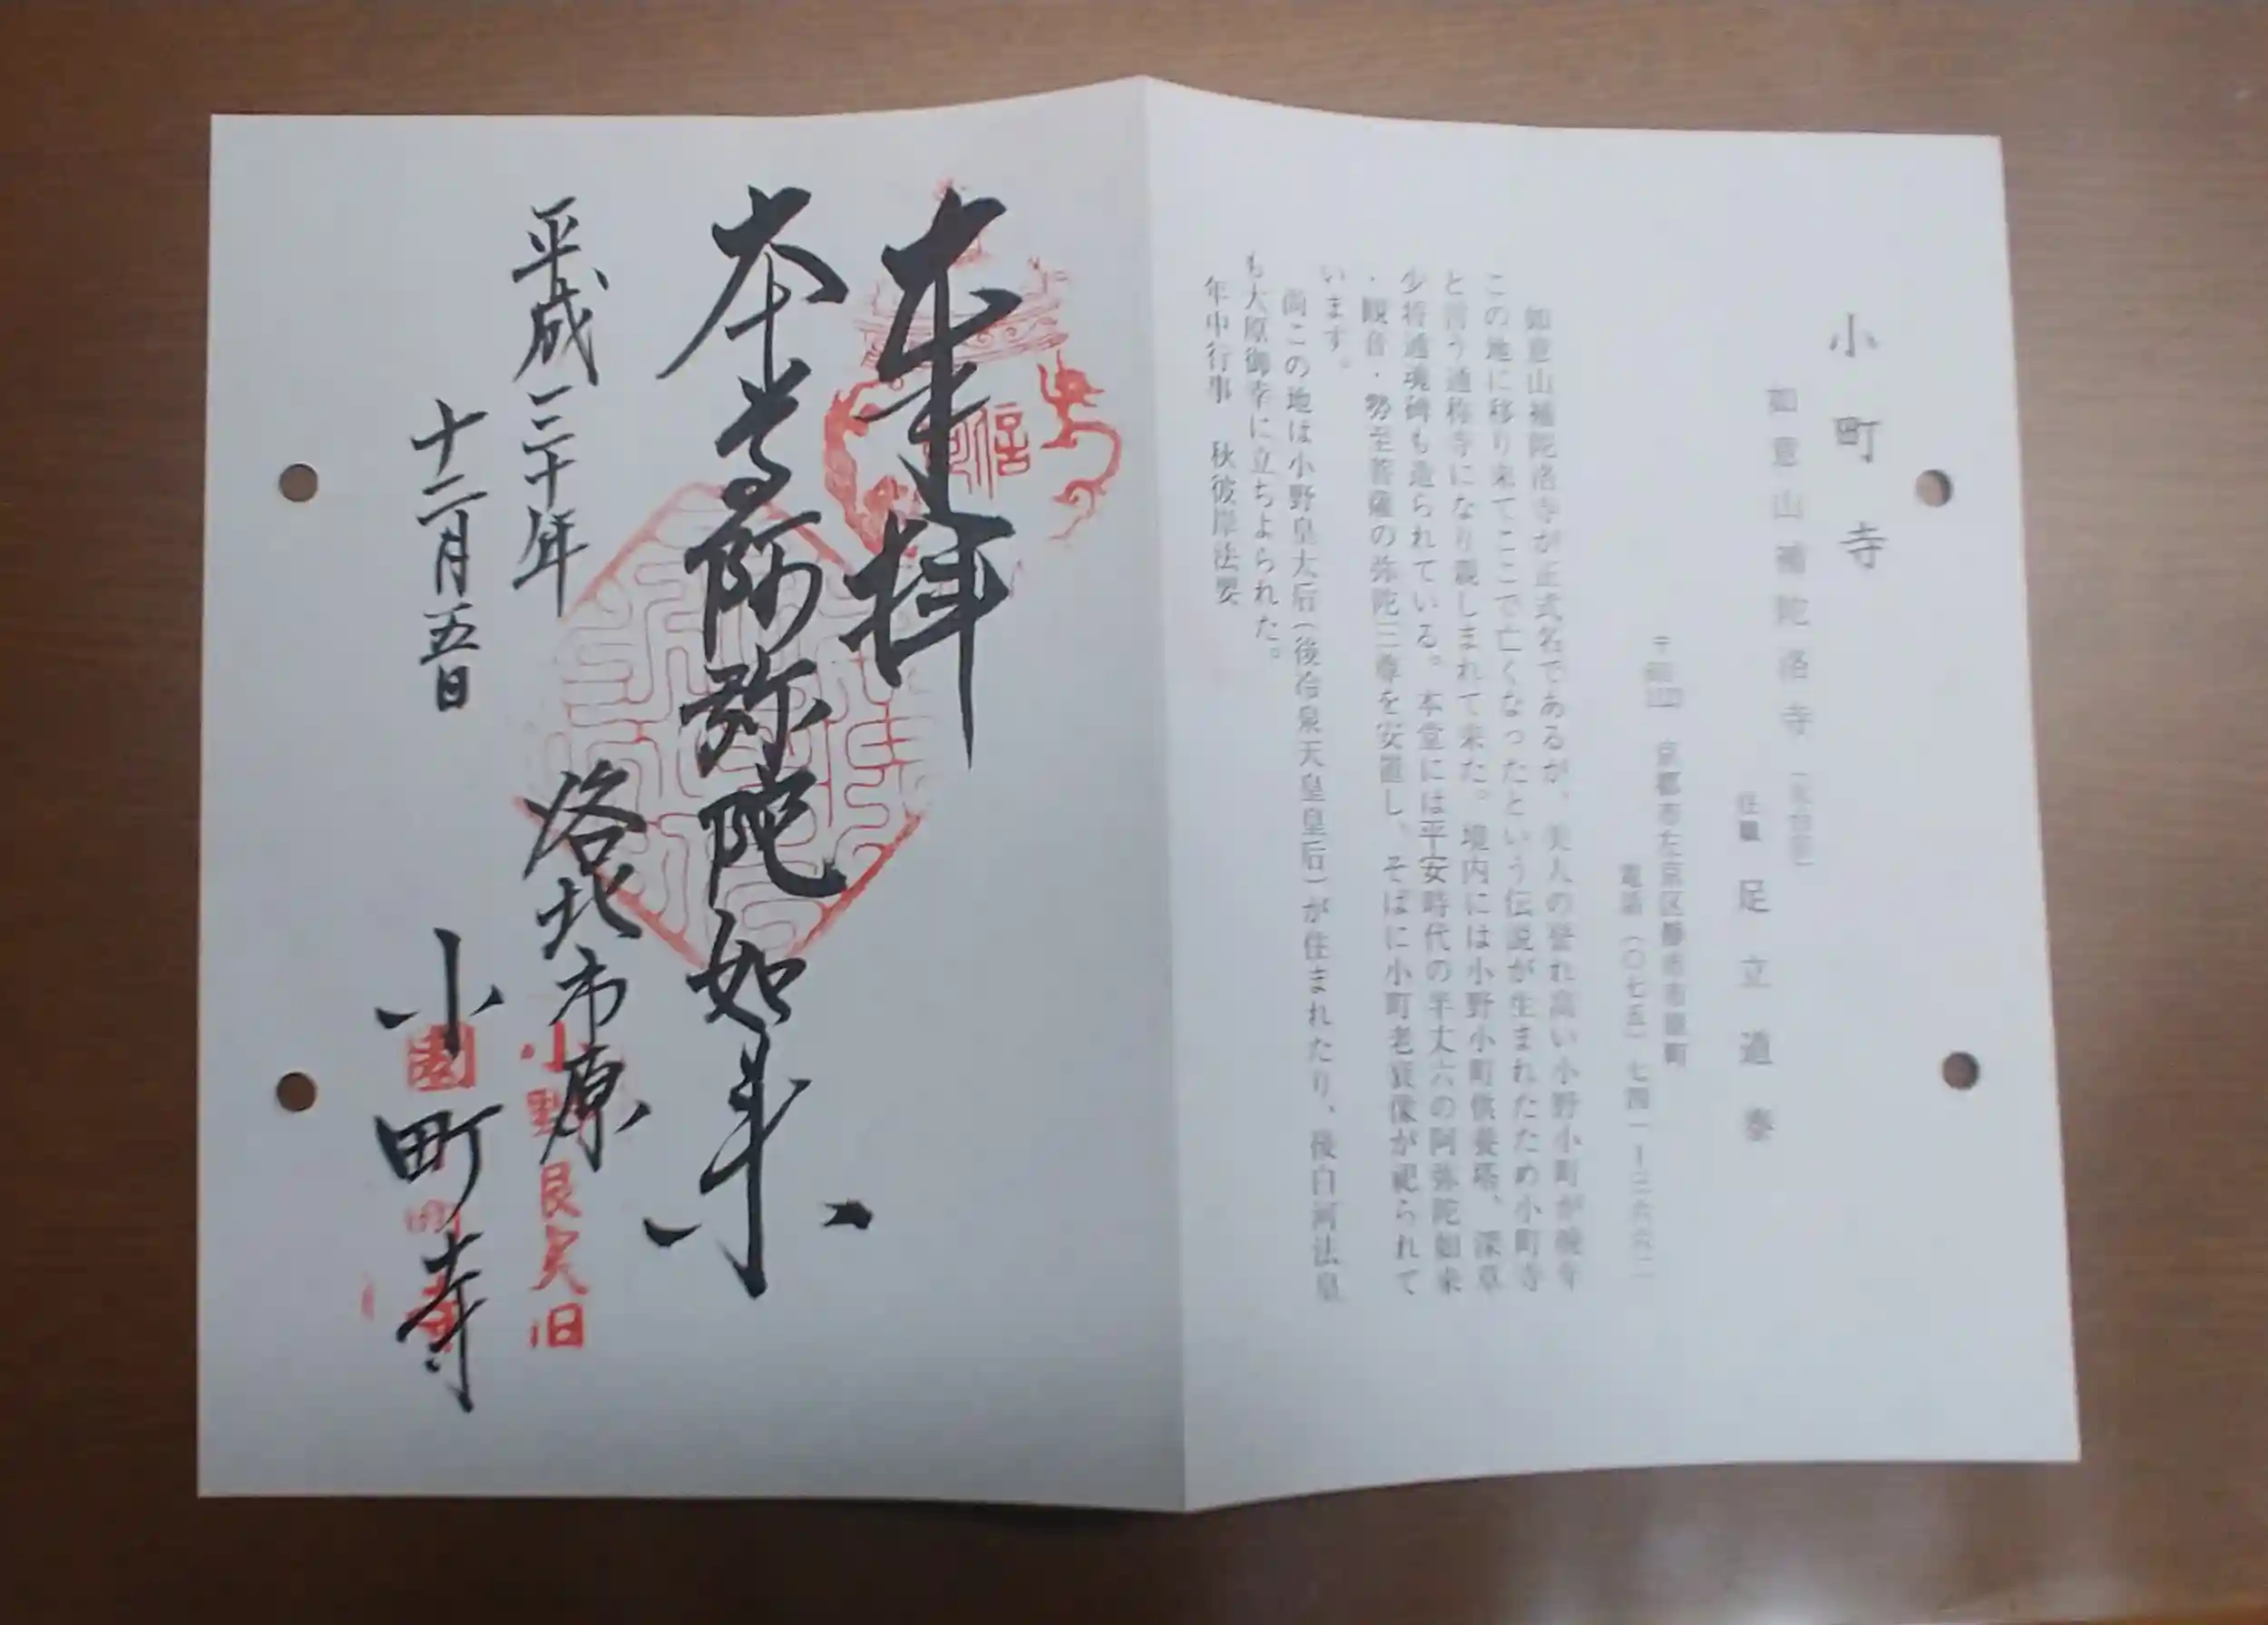 小町寺
如意山補陀洛寺（天台宗）
住職 足立道泰
京都市左京区静市市原町
電話（〇七五）七四一ー三六六二
如意山補陀洛寺が正式名であるが、美人の誉れ高い小野小町が晩年
この地に移り来てここで亡くなったという伝説が生まれたため小町寺
と言う通称寺になり親しまれて来た。境内には小野小町供養塔、深草
少将通魂碑も造られている。本堂には平安時代の半丈六の阿弥陀如来
・観音・勢至菩薩の弥陀三尊を安置し、そばに小町老衰像が祀られて
います。
尚この地は小野皇太后（後冷泉天皇皇后）が住まれたり、後白河法皇
も大原御幸に立ちよられた。
年中行事 秋彼岸法要
奉拝
本尊阿弥陀如来
洛北市原
小野
旧
平成三十年
十二月五日
小町寺